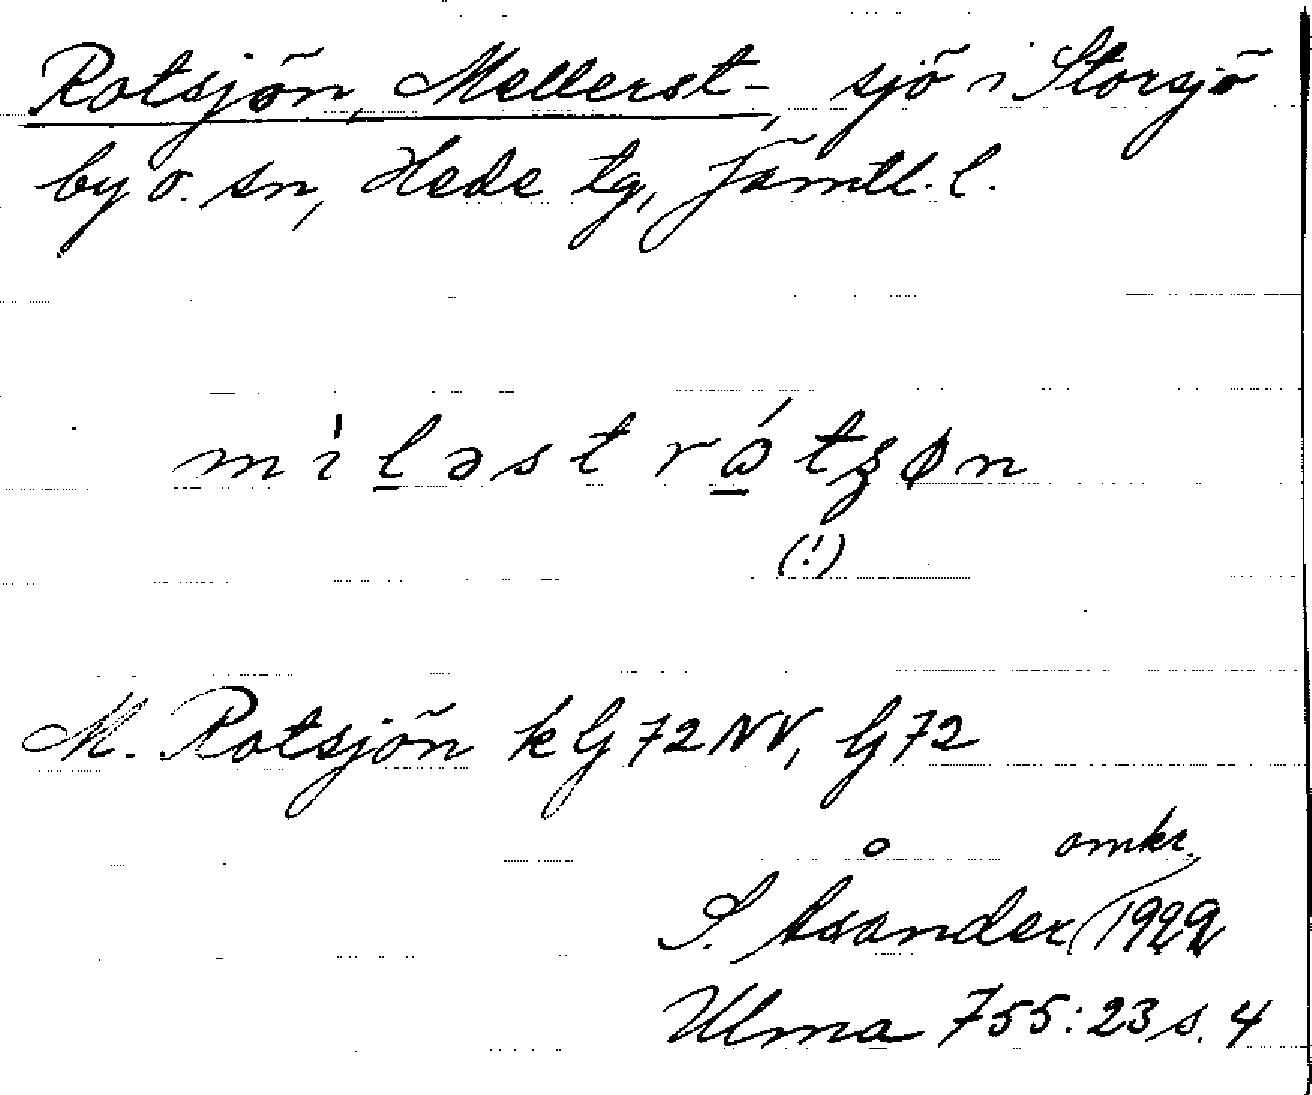 Rotsjön, Mellerst-, sjö i Storsjö
by o. sn, Hede tg, Jämtl. l.
mìl̠əst rɷ̠́tʂøn
(!)
M. Rotsjön kG72NV, G72
omkr.
S. Åsander 1922
Ulma 755:23 s. 4